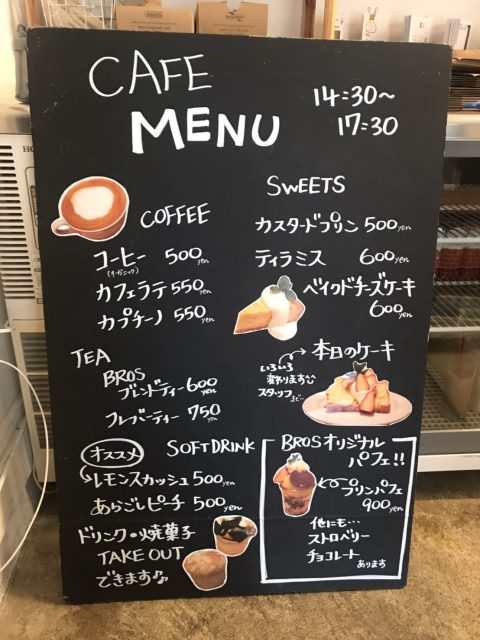 CAFE
MENU
14:30〜
17:30
COFFEE
コーヒー 500yen
(オーガニック)
カフェラテ 550yen
カプチーノ 550yen
TEA
BROS
ブレンドティー 600yen
フレーバーティー 750yen
SWEETS
カスタードプリン 500yen
ティラミス 600yen
ベイクドチーズケーキ
600yen
本日のケーキ
いろいろ
変わります
スタッフまで
オススメ
SOFT DRINK
レモンスカッシュ 500yen
あらごしピーチ 500yen
ドリンク・焼菓子
TAKE OUT
できます♪
BROSオリジナル
パフェ!!
プリンパフェ
900yen
他にも…
ストロベリー
チョコレート
あります